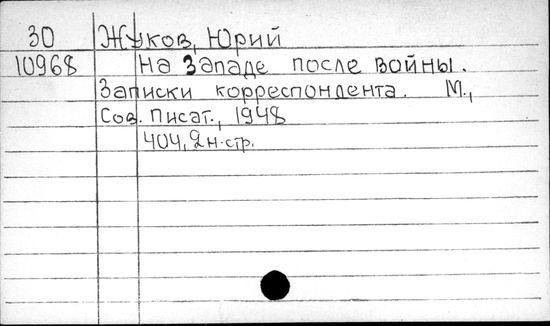 30 Жуков, Юрий
10968 На Западе после войны.
Записки корреспондента. М.,
Сов. писат., 1948
404, 2 н. стр.